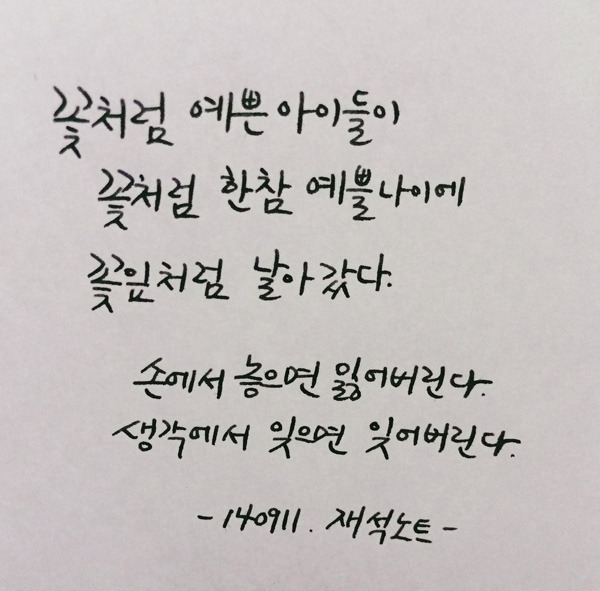 꽃처럼 예쁜 아이들이
꽃처럼 한참 예쁠 나이에
꽃잎처럼 날아갔다.
손에서 놓으면 잃어버린다.
생각에서 잊으면 잊어버린다.
- 140911. 재석노트 -